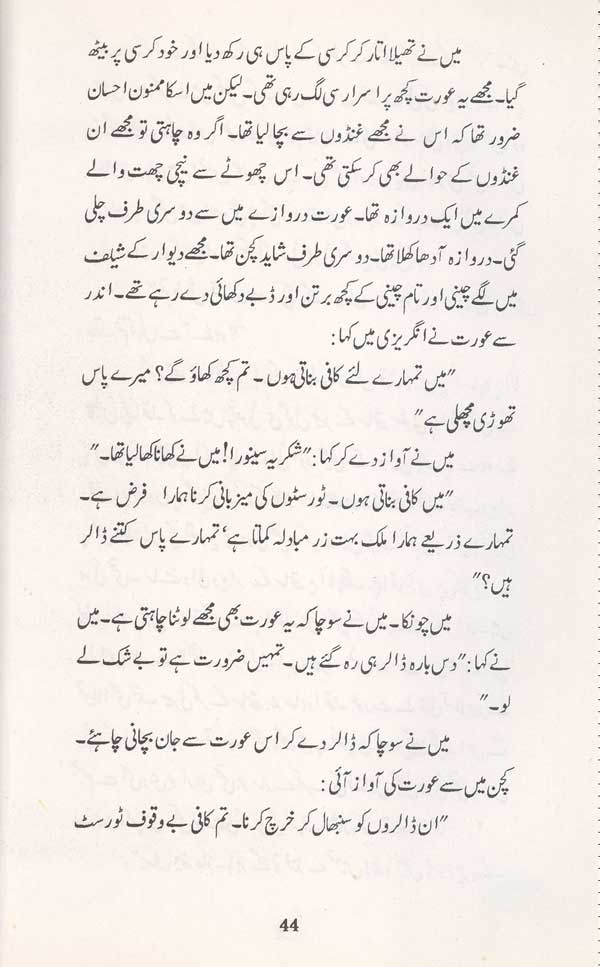 میں نے تھیلا اتار کر کرسی کے پاس ہی رکھ دیا اور خود کرسی پر بیٹھ
گیا۔ مجھے یہ عورت کچھ پر اسرار سی لگ رہی تھی۔ لیکن میں اسکا ممنون احسان
ضرور تھا کہ اس نے مجھے غنڈوں سے بچا لیا تھا۔ اگر وہ چاہتی تو مجھے ان
غنڈوں کے حوالے بھی کر سکتی تھی۔ اس چھوٹے سے نیچی چھت والے
کمرے میں ایک دروازہ تھا۔ عورت دروازے میں سے دوسری طرف چلی
گئی۔ دروازہ آدھا کھلا تھا۔ دوسری طرف شاید کچن تھا۔ مجھے دیوار کے شیلف
میں لگے چینی اور تام چینی کے کچھ برتن اور ڈبے دکھائی دے رہے تھے۔ اندر
سے عورت نے انگریزی میں کہا:
"میں تمہارے لئے کافی بناتی ہوں۔ تم کچھ کھاؤ گے؟ میرے پاس
تھوڑی مچھلی ہے"
میں نے آواز دے کر کہا: "شکریہ سینورا! میں نے کھانا کھا لیا تھا۔"
"میں کافی بناتی ہوں۔ ٹورسٹوں کی میزبانی کرنا ہمارا فرض ہے۔
تمہارے ذریعے ہمارا ملک بہت زر مبادلہ کماتا ہے' تمہارے پاس کتنے ڈالر
ہیں؟"
میں چونکا۔ میں نے سوچا کہ یہ عورت بھی مجھے لوٹنا چاہتی ہے۔ میں
نے کہا: "دس بارہ ڈالر ہی رہ گئے ہیں۔ تمہیں ضرورت ہے تو بے شک لے
لو۔"
میں نے سوچا کہ ڈالر دے کر اس عورت سے جان بچانی چاہئے۔
کچن میں سے عورت کی آواز آئی:
"ان ڈالروں کو سنبھال کر خرچ کرنا۔ تم کافی بے وقوف ٹورسٹ
44